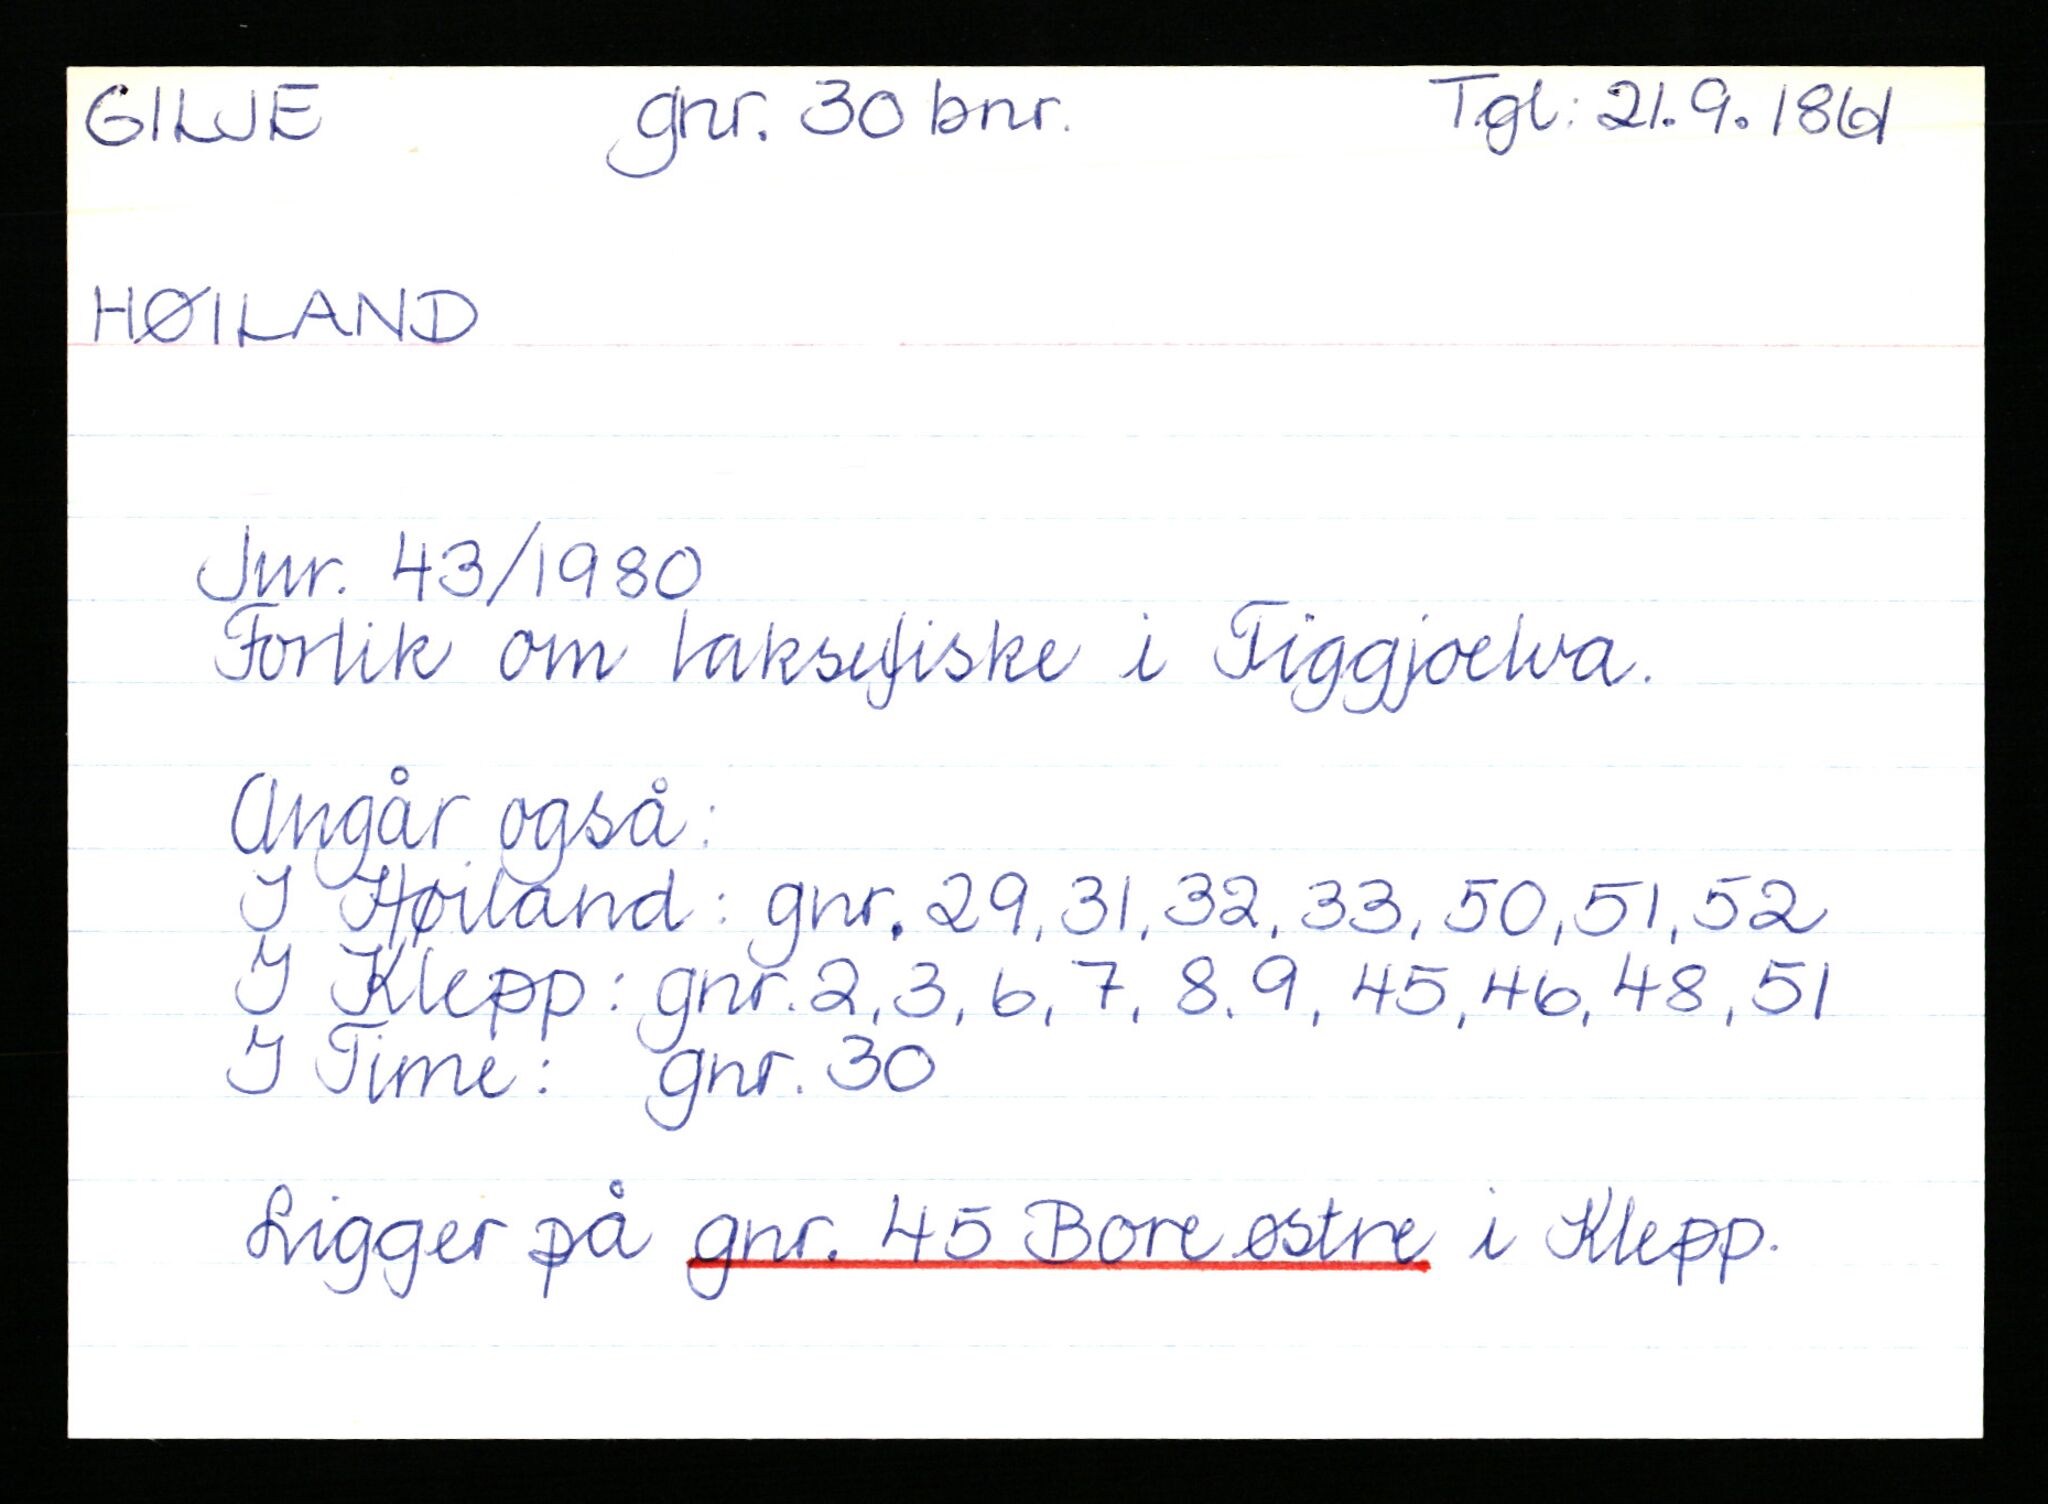 GILJE gnr. 30 bnr. Tgl: 21.9.1861
HØILAND
Jnr. 43/1980
Forlik om laksefiske i Figgjoelva.
Angår også:
I Høiland: gnr. 29, 31, 32, 33, 50, 51, 52
I Klepp: gnr. 2, 3, 6, 7, 8. 9, 45, 46, 48, 51
I Time: gnr. 30
Ligger på gnr. 45 Bore østre i Klepp.